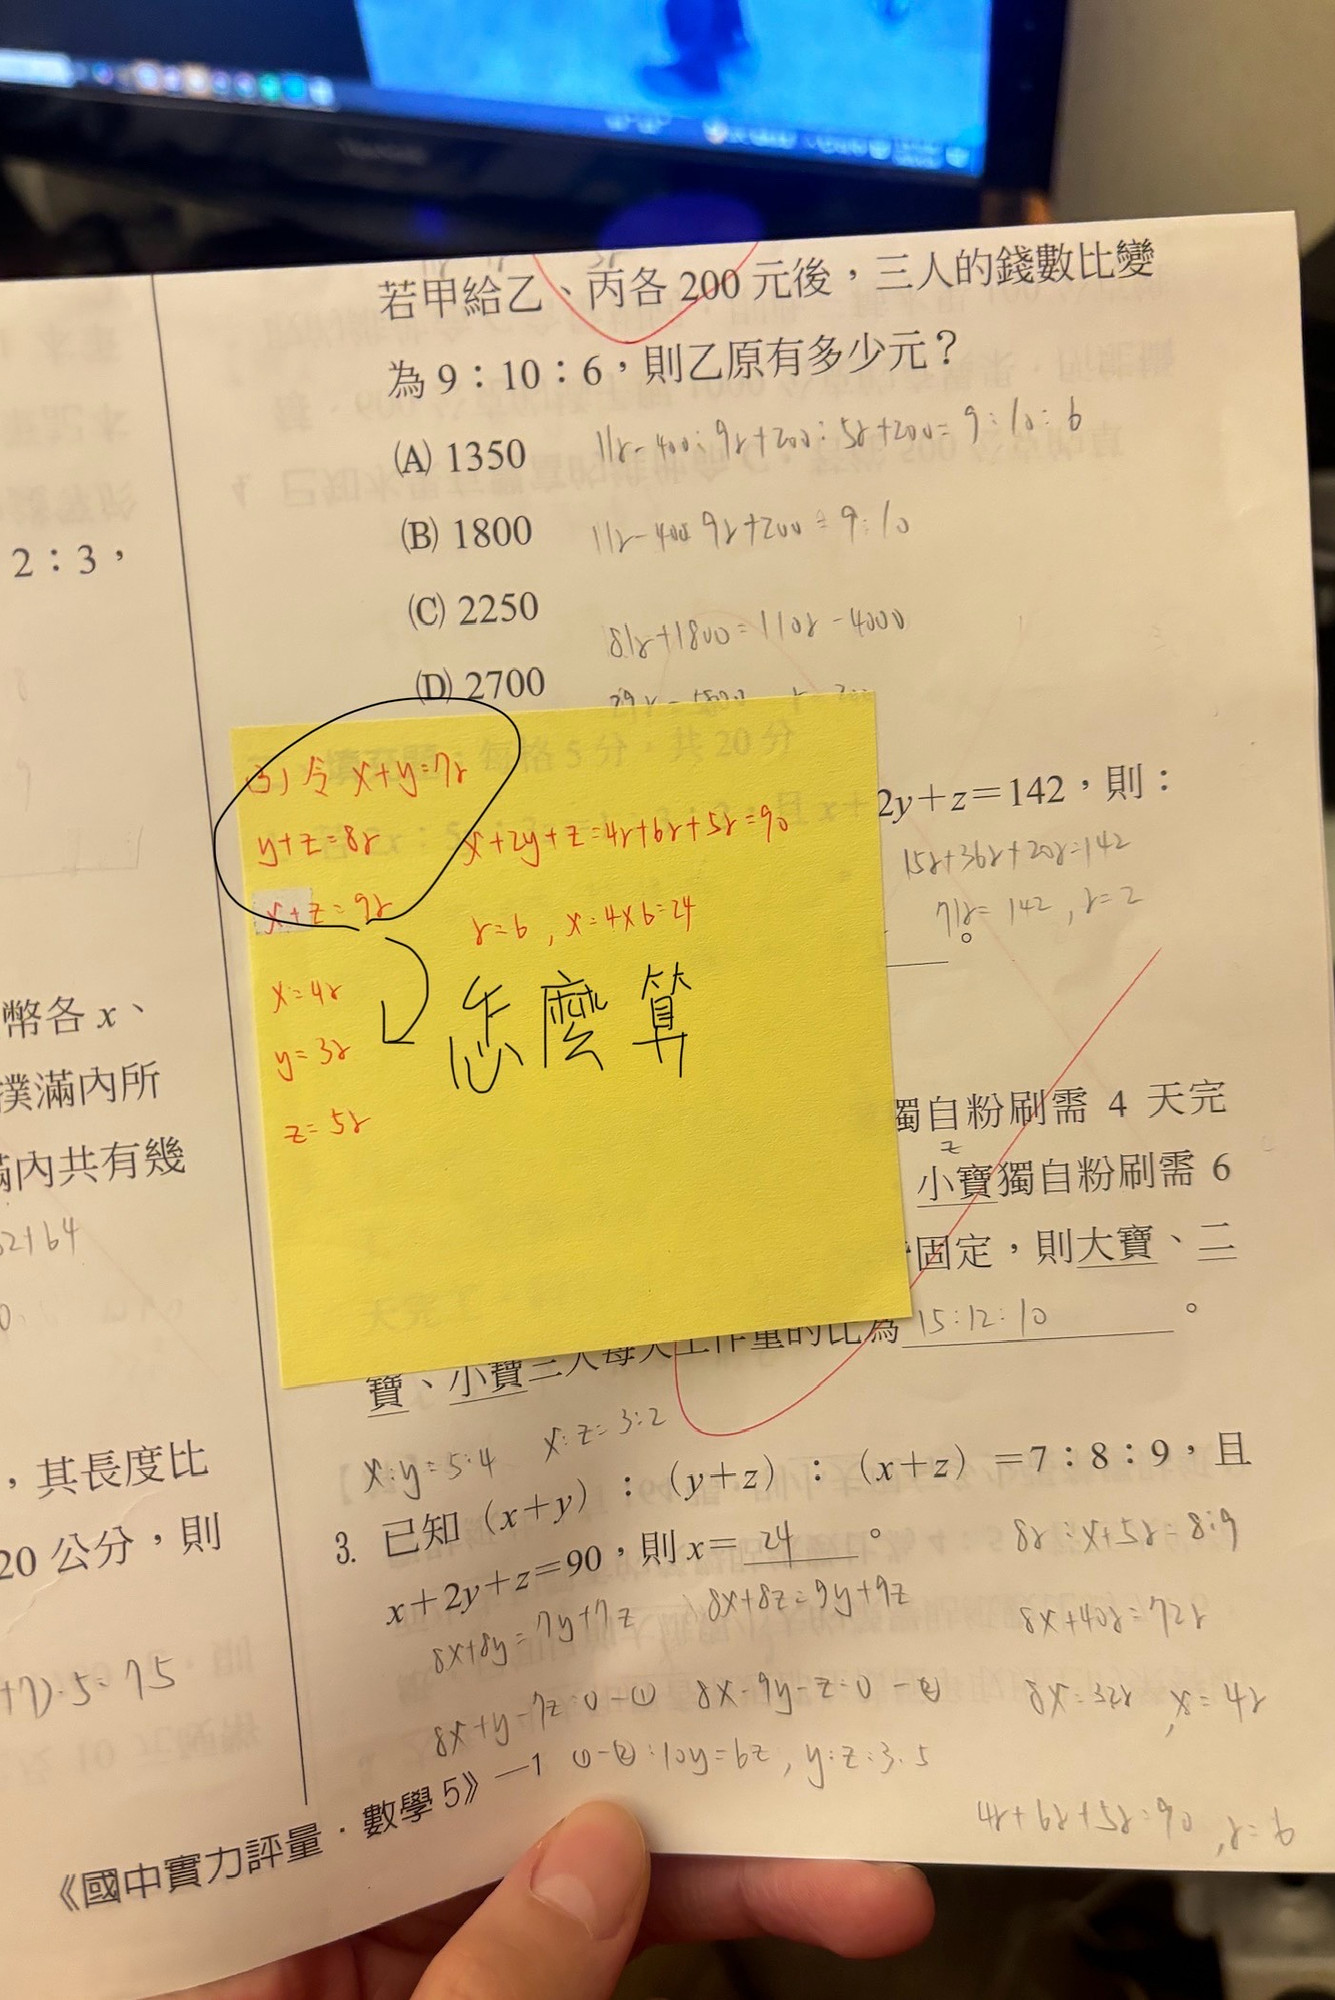 若甲給乙、丙各200元後，三人的錢數比變
為9：10：6，則乙原有多少元？
(A) 1350
11r-400：9r+200：5r+200=9：10：6
(B) 1800
11r-400：9r+200=9：10
(C) 2250
81r+1800=110r-4000
(D) 2700
29r=5800
2：3，
(3) 令 x+y=7r
y+z=8r
x+z=9r
x+2y+z=4r+6r+5r=90
r=6，x=4×6=24
x=4r
y=3r
z=5r
怎麼算
2y+z=142，則：
15r+36r+20r=142
71r=142，r=2
。
幣各x、
撲滿內所
滿內共有幾
獨自粉刷需 4 天完
z
小寶獨自粉刷需 6
固定，則大寶、二
寶、小寶三人每天工作量的比為 15:12:10 。
x:y=5:4 x:z=3:2
，其長度比
20公分，則
3. 已知（x+y）：（y+z）：（x+z）=7：8：9，且
x+2y+z=90，則x= 24 。
8x+8y=7y+7z
8x+8z=9y+9z
8x+y-7z=0-①
8x-9y-z=0-②
①-②:10y=6z，y:z=3:5
8r:x+5r=8:9
8x+40r=72r
8x=32r，x=4r
4r+6r+5r=90，r=6
+7)·5=75
《國中實力評量．數學5》—1